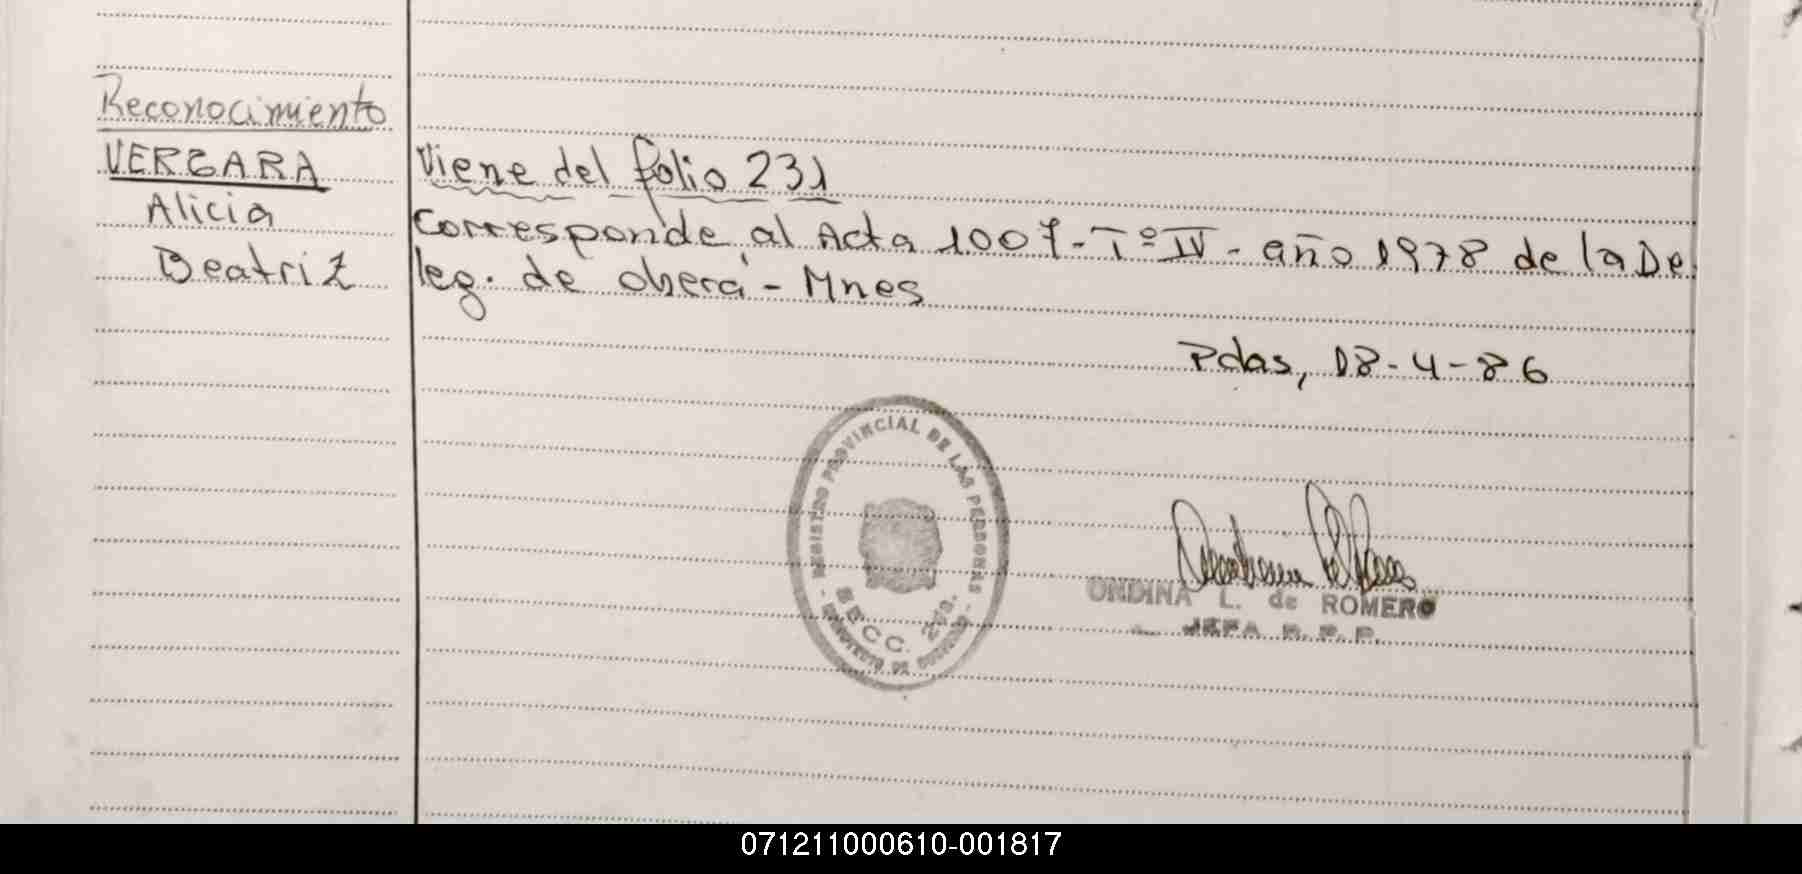 Reconocimiento
VERGARA
Alicia
Beatriz
Viene del folio 231
Corresponde al Acta 1007-Tº IV- año 1978 de la De
leg. de oberá - Mnes
Pdas, 08-4-86
REGISTRO PROVINCIAL DE LAS PERSONAS
SECC. 2da.
ONDINA L. de ROMERO
JEFA R. P. P.
071211000610-001817